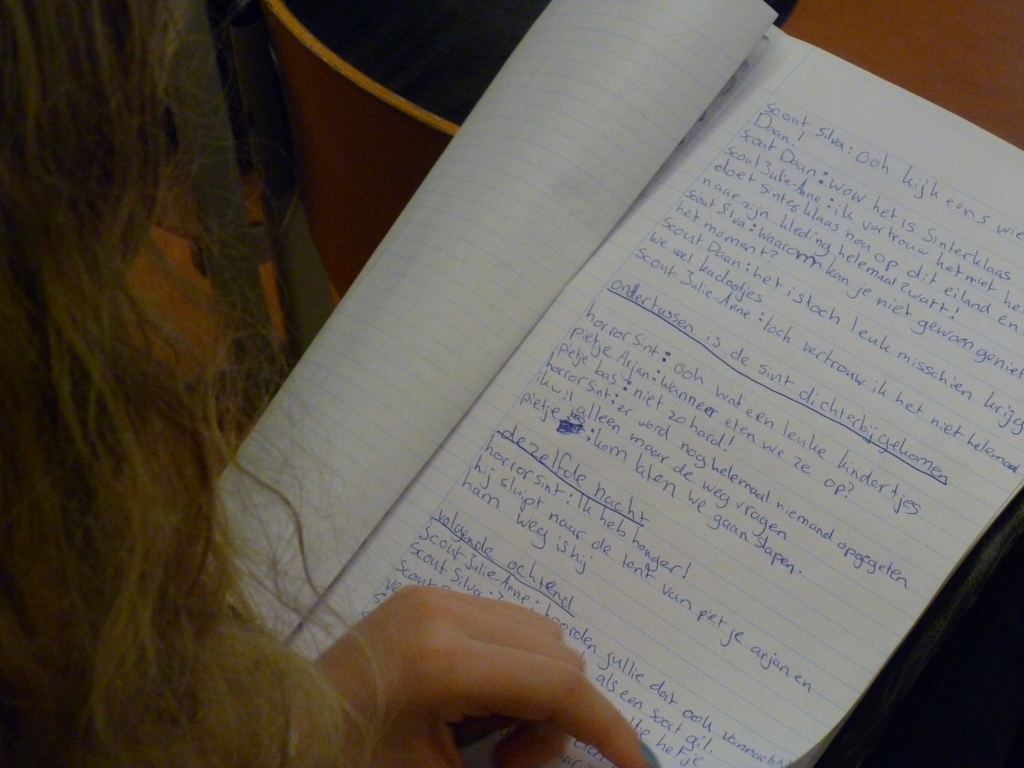 scout Silva: ooh kijk eens wie
Daan!
scout Daan: wow het is Sinterklaas
scout Julie-Anne: ik vertrouw het niet he
doet Sinterklaas nou op dit eiland en
naar zijn kleding helemaal zwart!
scout Silva: waarom kan je niet gewoon geniet
het moment?
scout Daan: het is toch leuk misschien krijg
we wel kadootjes
scout Julie-Anne: toch vertrouw ik het niet helemaal
ondertussen is de sint dichterbij gekomen
horror Sint: ooh wat een leuke kindertjes
pietje Arjan: wanneer eten we ze op?
pietje bas: niet zo hard!
horror Sint: er word nog helemaal niemand opgegeten
ik wil alleen maar de weg vragen
pietje : kom laten we gaan slapen.
dezelfde nacht
horror Sint: Ik heb honger!
hij sluipt naar de tent van pietje arjan en
ham weg is hij
volgende ochtend
scout Julie-Anne: hoorden jullie dat ook vannacht
scout Silva: als een scout gil.
scout hetje